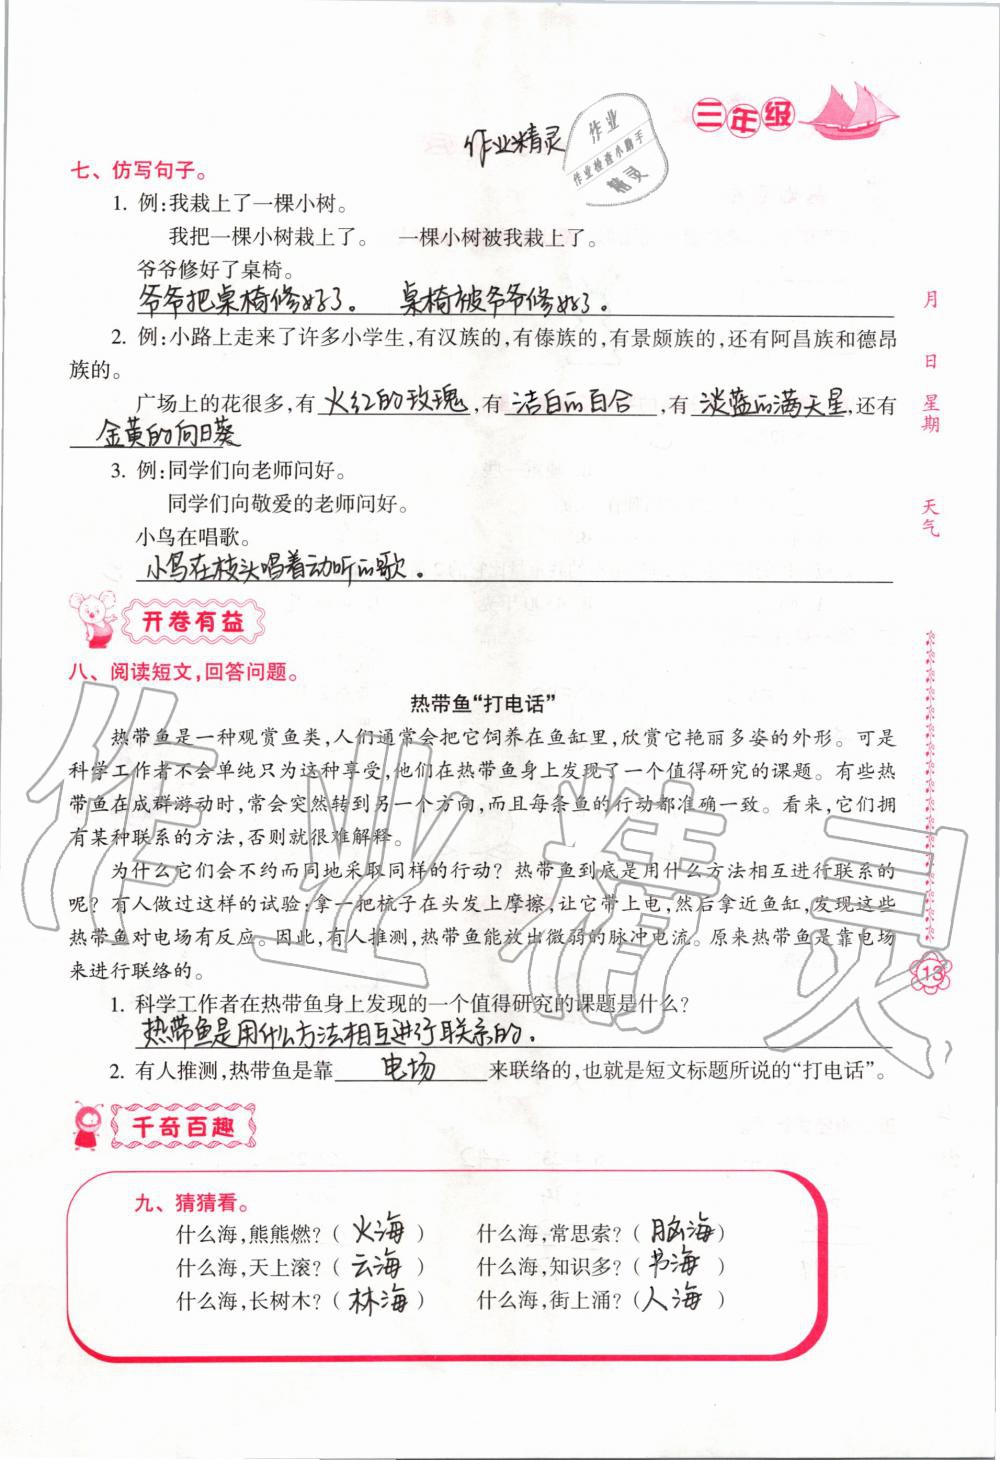 三年级
作业精灵
作业
作业检查小助手
精灵
七、仿写句子。
1. 例:我栽上了一棵小树。
我把一棵小树栽上了。 一棵小树被我栽上了。
爷爷修好了桌椅。
爷爷把桌椅修好了。 桌椅被爷爷修好了。
2. 例:小路上走来了许多小学生,有汉族的,有傣族的,有景颇族的,还有阿昌族和德昂
族的。
广场上的花很多,有 火红的玫瑰 ,有 洁白的百合 ,有 淡蓝的满天星 ,还有
金黄的向日葵
3. 例:同学们向老师问好。
同学们向敬爱的老师问好。
小鸟在唱歌。
小鸟在枝头唱着动听的歌。
开卷有益
八、阅读短文,回答问题。
热带鱼“打电话”
热带鱼是一种观赏鱼类,人们通常会把它饲养在鱼缸里,欣赏它艳丽多姿的外形。可是
科学工作者不会单纯只为这种享受,他们在热带鱼身上发现了一个值得研究的课题。有些热
带鱼在成群游动时,常会突然转到另一个方向,而且每条鱼的行动都准确一致。看来,它们拥
有某种联系的方法,否则就很难解释。
为什么它们会不约而同地采取同样的行动?热带鱼到底是用什么方法相互进行联系的
呢?有人做过这样的试验:拿一把梳子在头发上摩擦,让它带上电,然后拿近鱼缸,发现这些
热带鱼对电场有反应。因此,有人推测,热带鱼能放出微弱的脉冲电流。原来热带鱼是靠电场
来进行联络的。
1. 科学工作者在热带鱼身上发现的一个值得研究的课题是什么?
热带鱼是用什么方法相互进行联系的.
2. 有人推测,热带鱼是靠 电场 来联络的,也就是短文标题所说的“打电话”。
千奇百趣
九、猜猜看。
什么海,熊熊燃?( 火海 ) 什么海,常思索?( 脑海 )
什么海,天上滚?( 云海 ) 什么海,知识多?( 书海 )
什么海,长树木?( 林海 ) 什么海,街上涌?( 人海 )
月
日
星期
天气
13
作业精灵